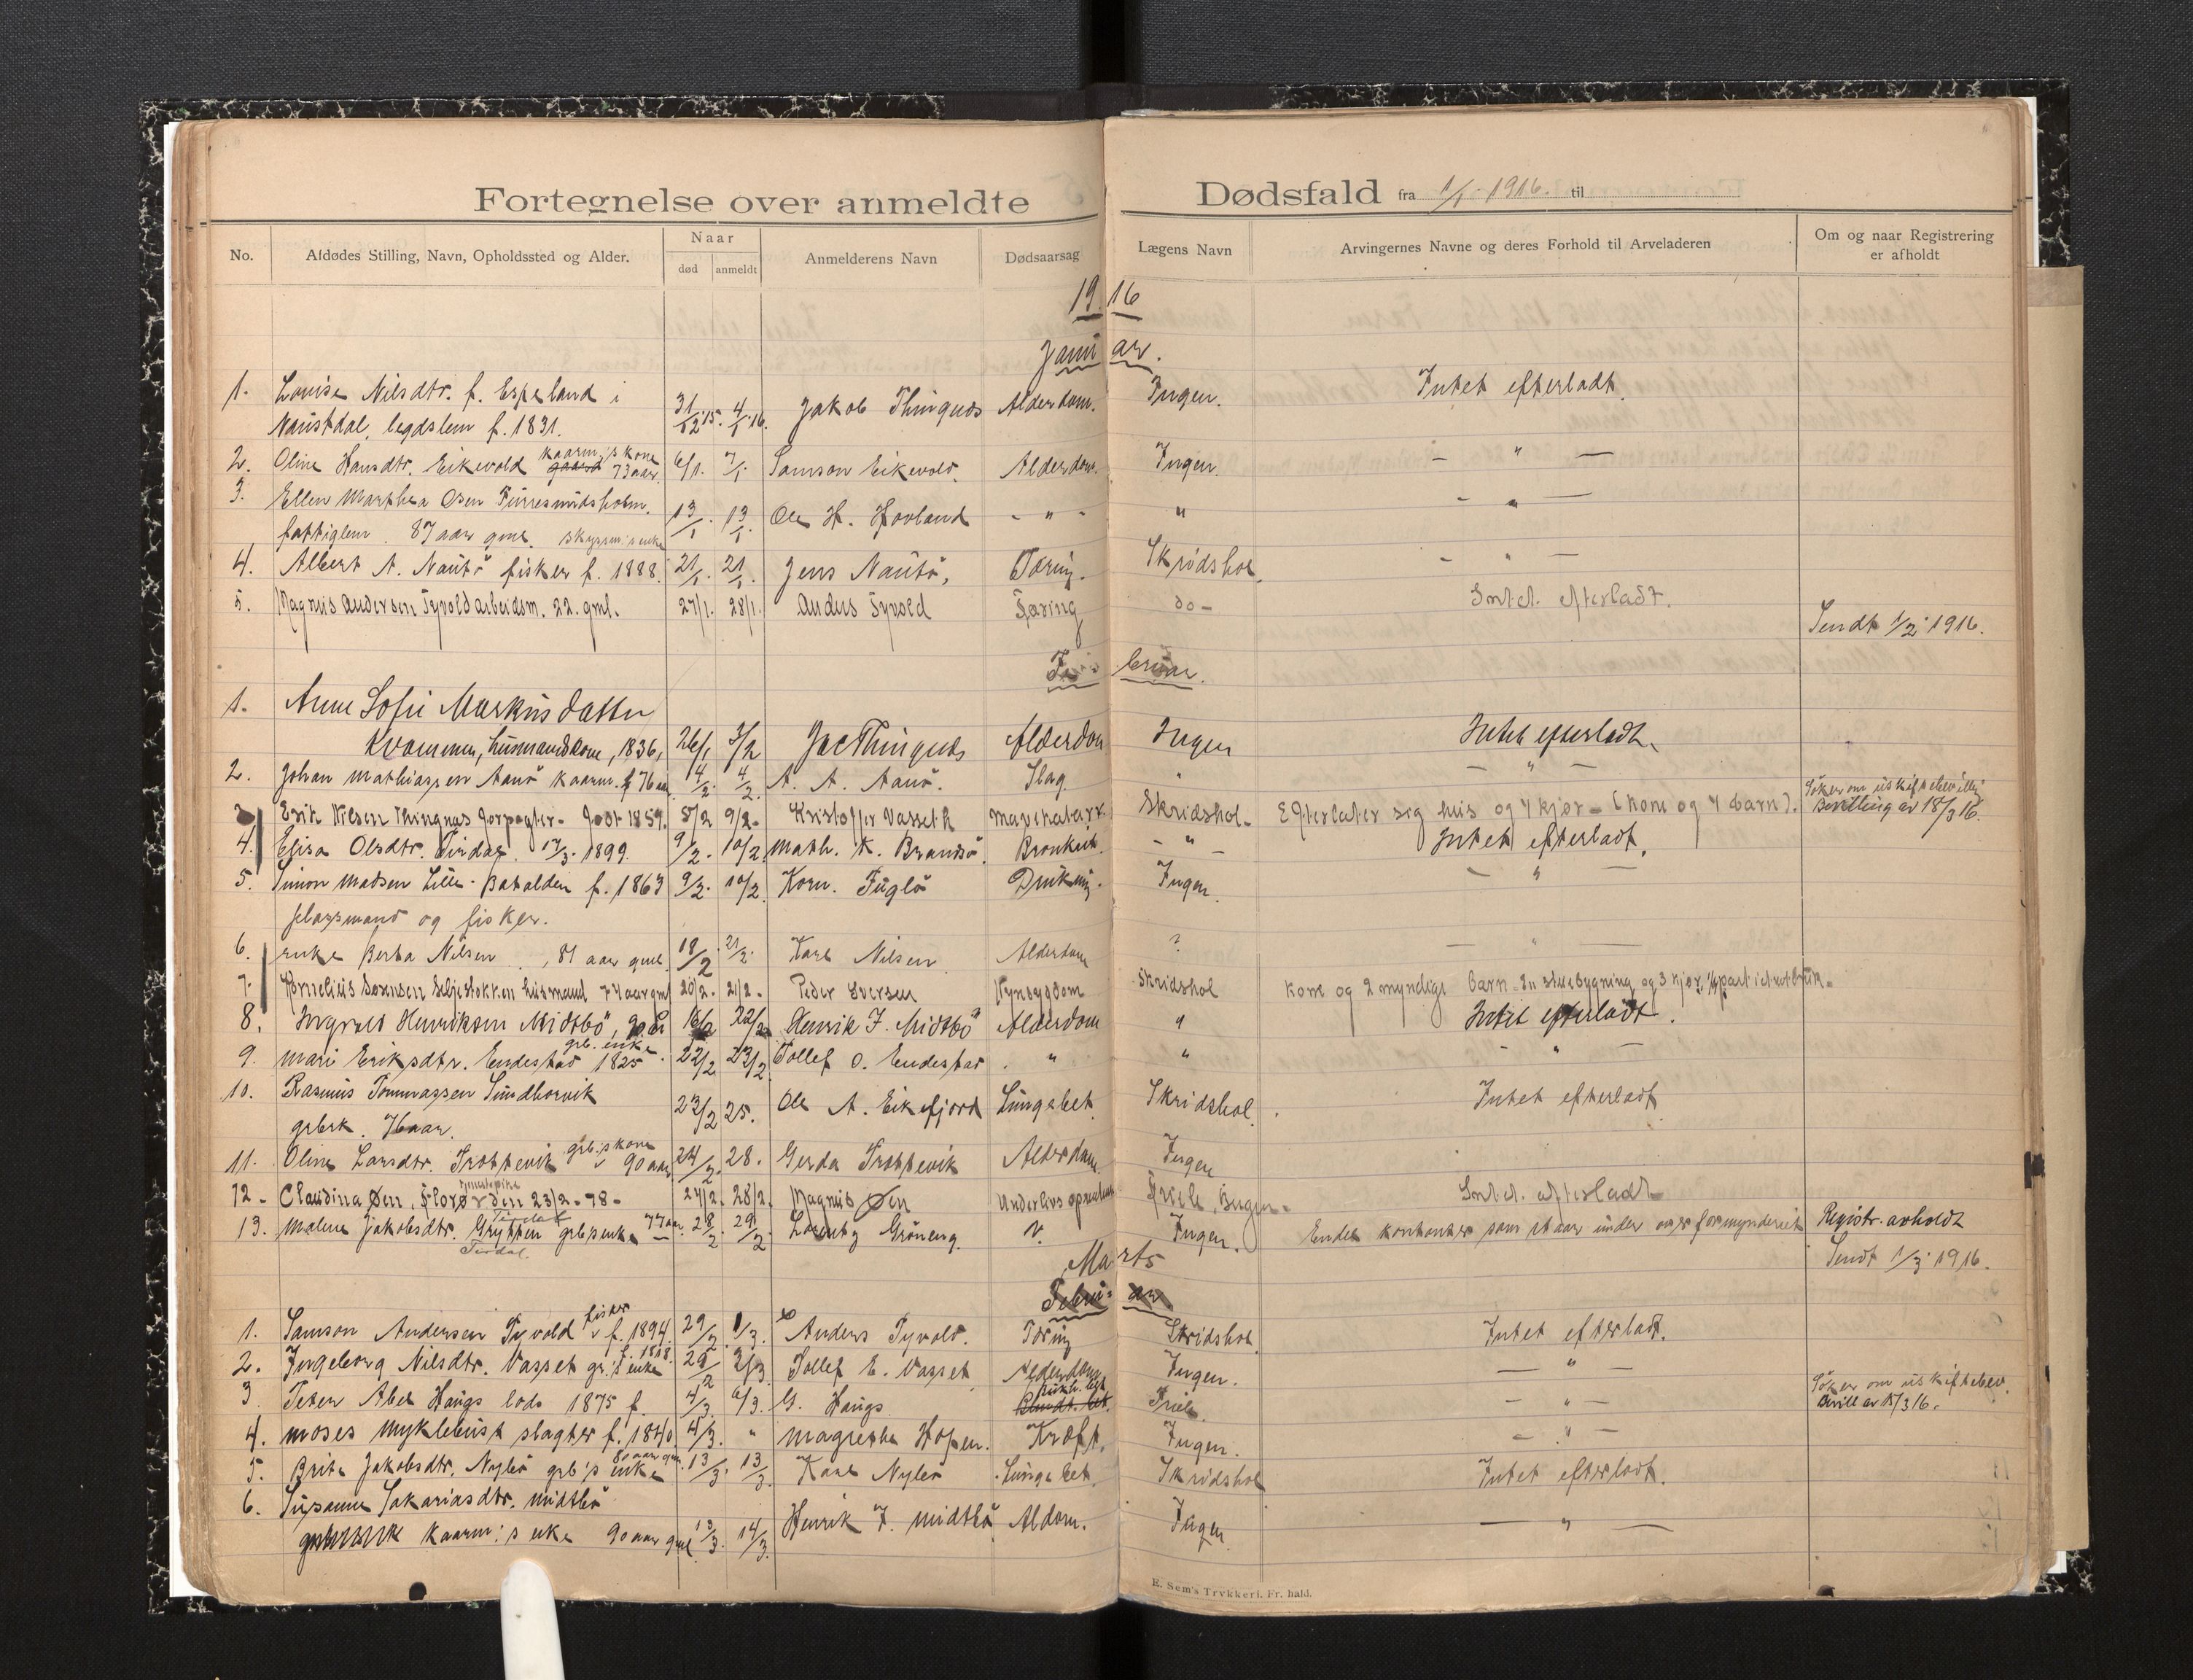 Fortegnelse over anmeldte Dødsfald fra 1/1 1916. til
No. Afdødes Stilling, Navn, Opholdssted og Alder. Naar død anmeldt Anmelderens Navn Dødsaarsag Lægens Navn Arvingernes Navne og deres Forhold til Arveladeren Om og naar Registrering er afholdt
1916
Januar.
1. Lovise Nilsdtr. f. Espeland i
Naustdal, legdslem f. 1831. 31/12 15. 4/1 16. Jakob Thingnæs Alderdom. Ingen. Intet efterladt.
2. Oline Hansdtr. Eikevold kaarm.'s kone 73 aar. 6/1. 7/1. Samson Eikevold. Alderdom. Ingen. - " -
3. Ellen Marthea Osen Furresundsholm.
fattiglem. 87 aar gml. skyssm.'s enke 13/1. 13/1. Ole H. Hovland - " - " - " -
4. Albert A. Nautø fisker f. 1888. 21/1. 21/1. Jens Nautø, Tæring. Skridshol. - " -
5. Magnus Andersen Tyvold arbeidsm. 22. gml. 27/1. 28/1. Anders Tyvold Tæring do- Intet. efterladt.
Sendt 1/2 1916.
Februar.
1. Anne Sofie Markusdatter
Kvammen, husmandskone, 1836, 26/1 3/2 Jac Thingnæs Alderdom Ingen Intet efterladt.
2. Johan Mathiassen Aanø kaarm. 76 aar. 4/2. 4/2. A. A. Aanø. Slag. " - " -
3 Erik Nilsen Thingnæs forpagter - født 1859. 8/2 9/2- Kristoffer Vasseth Mavekatarr Skridshol- Efterlater sig hus og 4 kjør - (kone og 4 barn). Søker om uskiftebevilling
Bevilling av 18/3 16.
4. Elisa Olsdtr. Tindal. 17/3. 1899. 9/2. 10/2 Math. K. Brandsø. Bronkit. - " - Intet efterladt.
5. Simon Madsen Lille-Batalden f. 1863 9/2. 10/2 Korn. Fuglø Drukning. Ingen. - " -
plassmand og fisker.
6. enke Berta Nilsen, 81 aar gml. 18/2 21/2. Karl Nilsen Alderdom ? - " -
7. Kornelius Sørensen Seljestokken husmand 74 aar gml 20/2. 21/2- Peder Iversen Nyresygdom Skridshol kone og 2 myndige barn - En stuebygning og 3 kjør, 1/4 part i et notbruk.
8. Ingvald Henriksen Midtbø, 16/2 22/2 Henrik J. Midtbø Alderdom " Intet efterladt.
9. Mari Eriksdtr. Endestad grb. enke 1825. 22/2 23/2. Tollef O. Endestad " " - " -
10. Rasmus Tommassen Sundhorvik
grbrk. 76 aar. 23/2 25. Ole A. Eikefjord Lungebet. Skridshol. Intet efterladt
11. Oline Larsdtr. Trottevik grb.'s kone 90 aar 24/2. 28. Gerda Trottevik Alderdom. Ingen
12- Claudina Øen, Florø født den 23/2-78- 27/2. 28/2. Magnus Øen Underlivs operation Friele, Bergen- Intet. efterladt
13. Malene Jakobsdtr. Grytten grb's enke 77 aar. 28/2. 29/2 Lorentz Grøneng. " Ingen. Endel kontanter som staar under overformynderiet Registr. avholdt
Tindal. Sendt 1/3 1916.
Marts
Februar
1. Samson Andersen Tyvold fisker f. 1894. 29/2. 1/3. Anders Tyvold. Tæring Skridshol Intet efterladt.
2. Ingeborg Nilsdtr. Vasset gr.'s enke f. 1818. 29/2 3/3 Tollef E. Vasset Alderdom Ingen. - " -
3 Peter Abel Haugs lods 1875 f. 4/3. 6/3. G. Haugs Friele. - " - Søker om uskiftebev.
Bevill av 15/3 16.
4. Moses Myklebust slagter f. 1840. 4/3. " Magrethe Hopen. Kræft. Ingen. - " -
5. Brite Jakobsdtr. Nylø grb's enke 80 aar gml. 13/3. 13/3. Karl Nylø Lungebet. Skridshol Intet efterladt.
6. Susanne Sakariasdtr. Midtbø
kaarm.'s enke 90 aar gml. 13/3. 14/3. Henrik J. Midtbø Aldom. Ingen - " -
E. Sem's Trykkeri, Fr.hald.